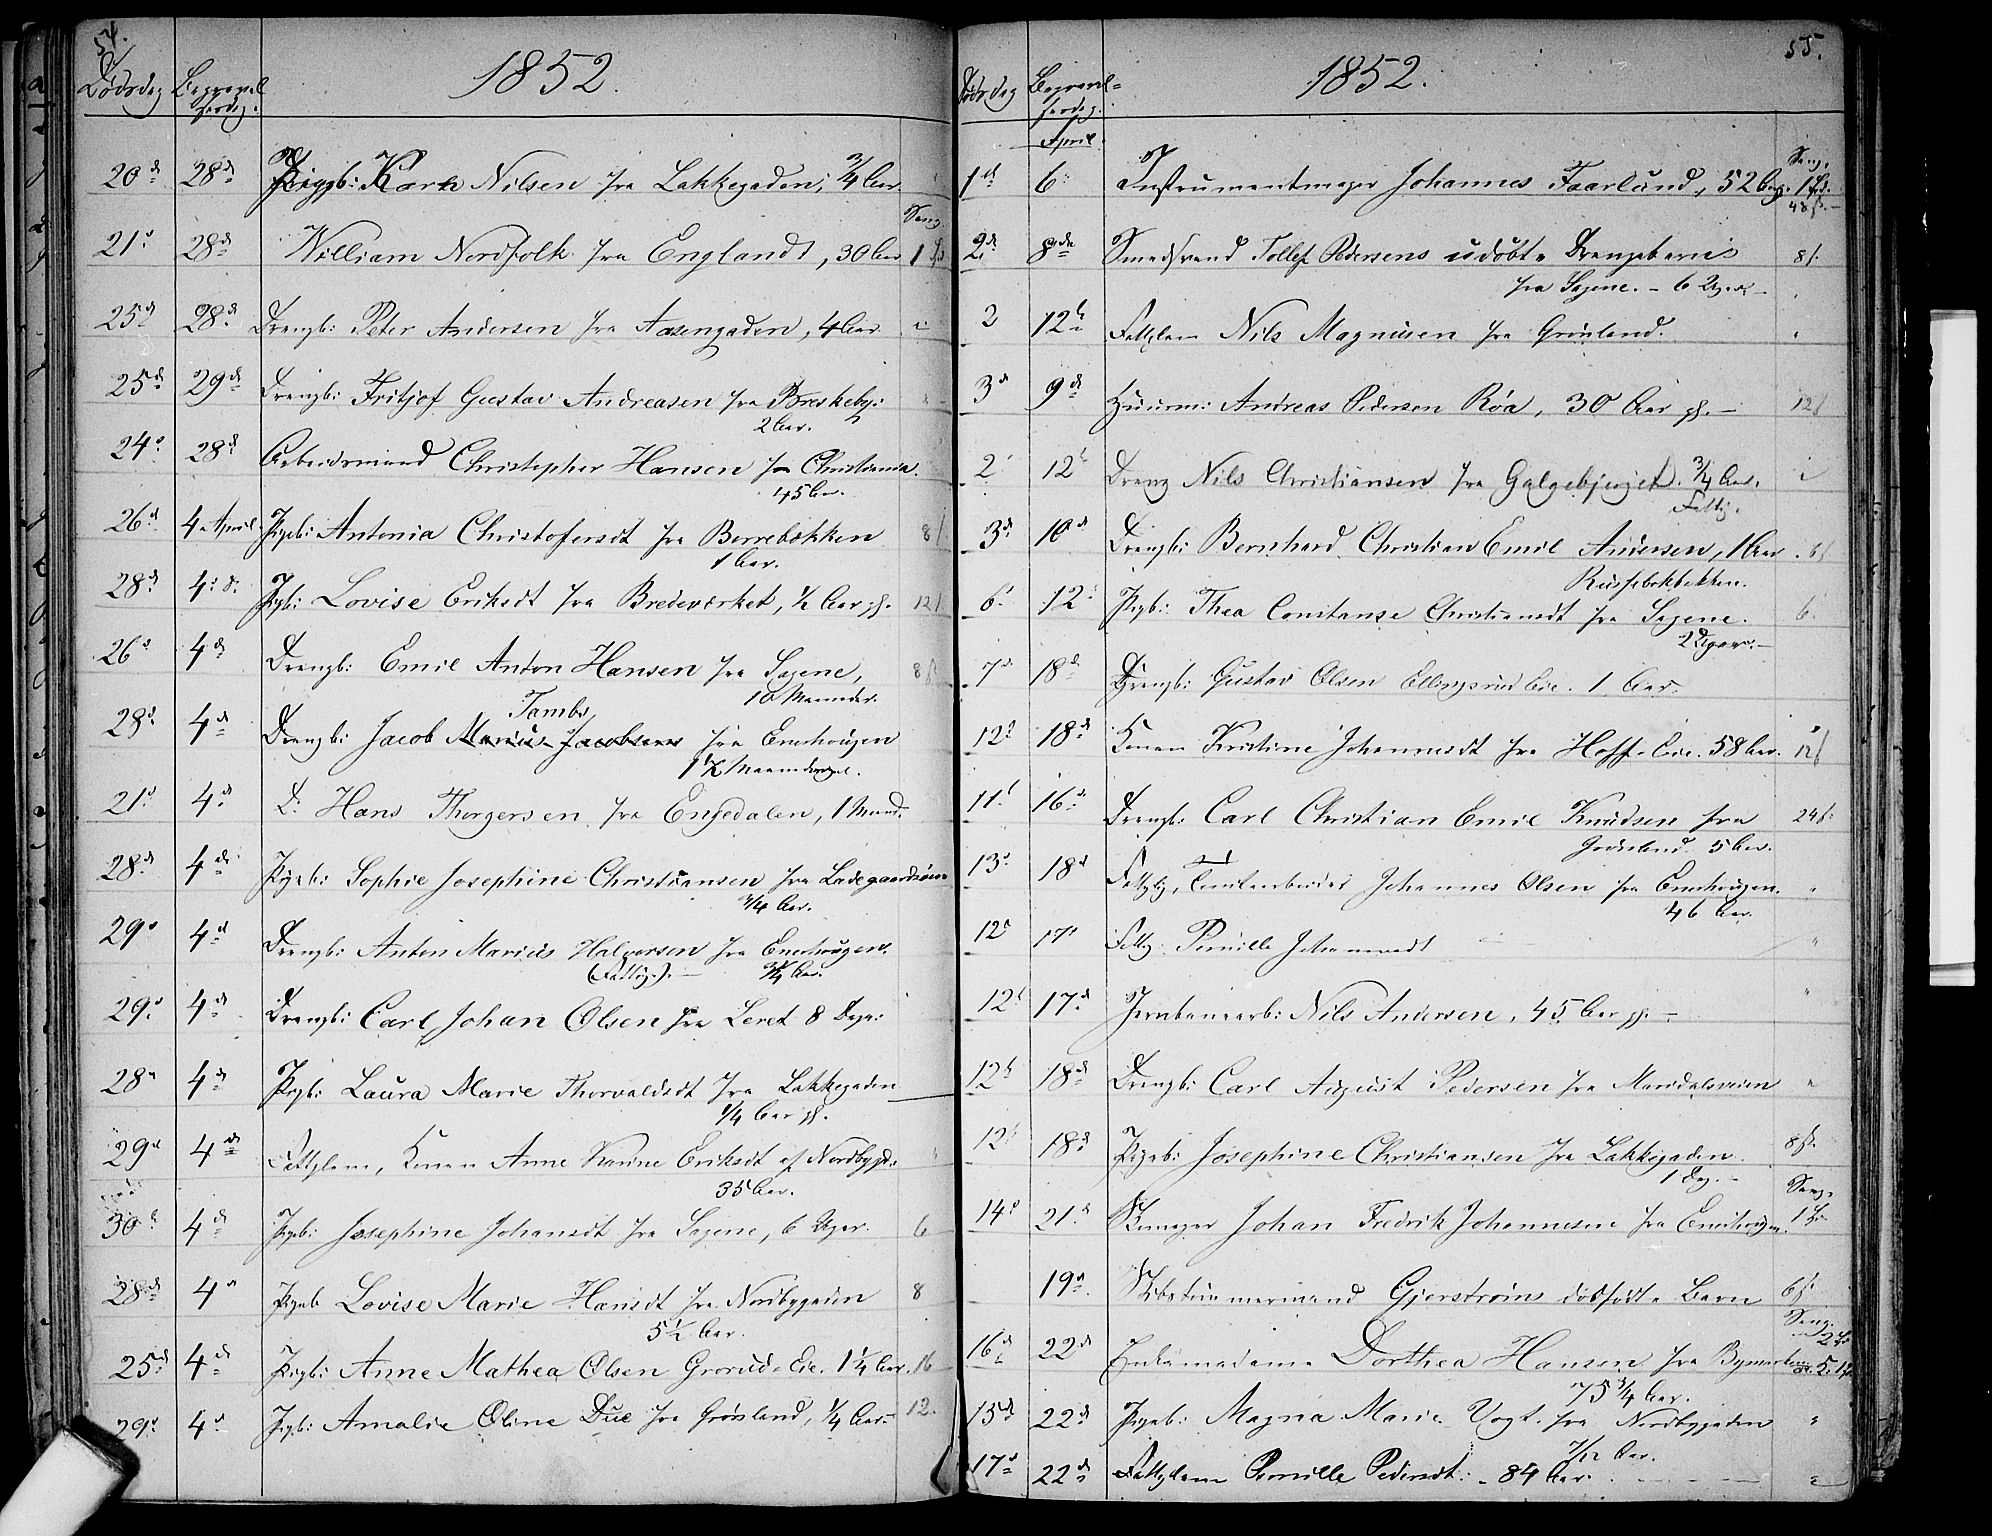 54.
Dødsdag Begravelsesdag. 1852.
20d 28d Pigeb: Karen Nilsen fra Lakkegaden, 3/4 Aar.
Seng.
21d 28d William Nordfolk fra Englandt, 30 Aar 1
25d 28d Drengb: Peter Andersen fra Aasengaden, 4 Aar.
25d 29d Drengb: Fritjof Gustav Andreasen fra Breskeby:
2 Aar.
24d 28d Arbeidsmand Christopher Hansen fra Christiania.
45 Aar.
26d 4. April. Pigeb: Antonia Christofersdt fra Borrebækken 8
1 Aar.
28d 4d Pigeb: Lovise Eriksdt fra Bredeværket, 1/2 Aar gl. 12
26d 4d Drengb: Emil Anton Hansen fra Sagene, 8
10 Maaneder.
Tambs
28d 4d Drengb: Jacob Marius Jacobsen fra Enerhougen
1 1/2 Maaned
21d 4d D: Hans Thorgersen fra Engedalen, 1 Maaned.
28d 4d Pigeb: Sophie Josephine Christiansen fra Ladegaardsøen
3/4 Aar.
29d 4d Drengb: Anton Marius Halvorsen fra Enerhougen.
(Fattig.). 3/4 Aar.
29d 4d Drengb: Carl Johan Olsen fra Leret 8 Dage:
28d 4d Pigeb: Laura Marie Thorvaldsdt fra Lakkegaden
1/4 Aar gl.
29d 4d Fattiglem, Konen Anne Karine Eriksdt af Nordbygd:
35 Aar.
30d 4d Pigeb: Josephine Johansdt fra Sagene, 6 Uger. 6
28d 4d Pigeb: Lovise Marie Hansdt fra Nordbygaden 8
5 1/2 Aar.
25d 4d Pigeb: Anne Mathea Olsen Grorud-Eie. 1 1/4 Aar. 16
29d 4d Pigeb: Amalie Oline Due fra Grønland, 1/4 Aar. 12.
55.
Dødsdag Begravelsesdag. 1852.
April.
Seng.
1d 6d Instrumentmager Johannes Faarlund, 52 Aar. 1
48
2d 8de Smedsvend Tollef Pedersens udøbte Drengebarn 8
fra Sagene. - 6 Uger
2 12d Fattiglem Nils Magnusen fra Grønland.
3d 9d Huusm: Andreas Pedersen Røa, 30 Aar gl. 12
2d 12d Dreng Nils Christiansen fra Galgebjerget. 3/4 Aar.
Fattig.
3d 10d Drengb: Bernhard Christian Emil Andersen, 1 Aar. 6
6d 12d Pigeb: Thea Constanse Christiansdt fra Sagene. 6
2 Uger.
7d 18d Drengb: Gustav Olsen Ellingsrud Eie. 1 Aar.
12d 18d Konen Kristine Johannesdt fra Hoff-Eie. 58 Aar. 12
11d 16d Drengb: Carl Christian Emil Knudsen fra 24
Grønland 5 Aar.
13d 18d Fattig, Johannes Olsen fra Enerhougen.
46 Aar.
12d 17d Fattig: Pernille Johannesdt
12d 17d Jernbanearb: Nils Andersen, 45 Aar gl.
12d 18d Drengb: Carl August Pedersen fra Maridalsveien
12d 18d Pigeb: Josephine Christiansen fra Lakkegaden. 8
1 Dag.
Seng.
14d 21d Skomager Johan Fredrik Johannesen fra Enerhougen. 1
19d Skibstømmermand Gjerstrøms dødfødte Barn 6
Seng.
16d 22d Enkemadame Dorthea Hansen fra Bymarken
75 3/4 Aar.
15d 22d Pigeb: Magna Marie Vogt. fra Nordbygaden
7/12 Aar.
17d 22d Fattiglem Pernille Pedersdt: 84 Aar.